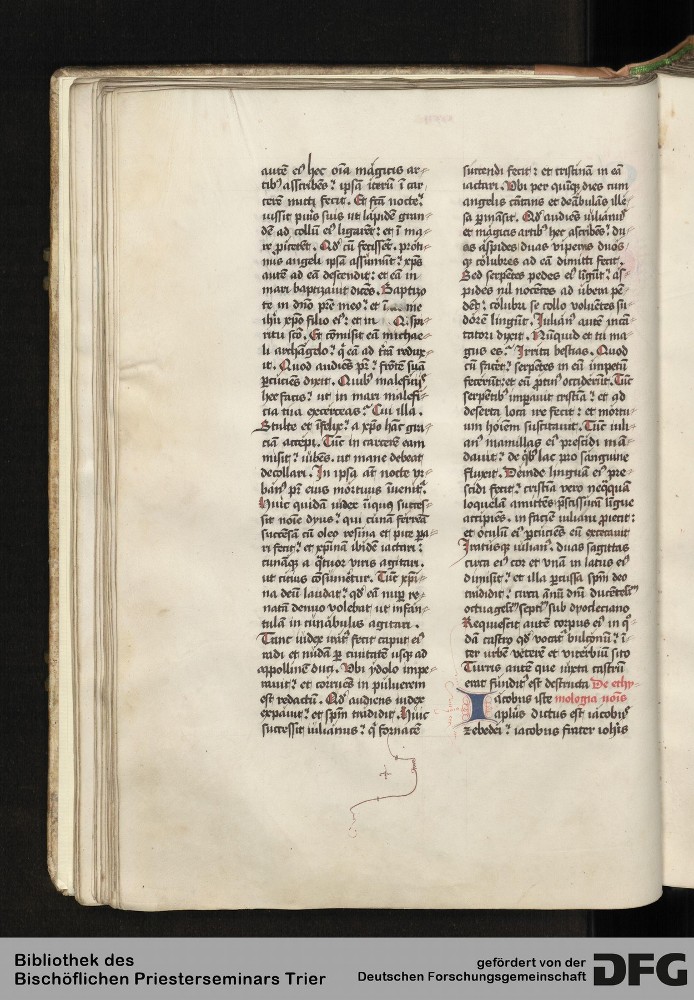 autē ei⁹ hec oīa magicis ar-
tib⁹ asscribēs? ipsā iterū ī car
cerē mitti fecit. Et fctā nocte?
iussit pu͛is suis ut lapidē gran-
dē ad collū ei⁹ ligarēt: et ī ma-
re ꝓicerēt. Qd̄ cū fecissēt. proti-
nus angeli ipsā assumūt? xp̄s
autē ad eā descendit: et eā in
mari baptizauit dicēs. Baptizo
te in dn̄o pr̄e meo? et ī me
ihū xp̄o filio ei⁹: et in spi-
ritu sc̄o. Et cōmisit eā michae-
li archāgelo? q̄ eā ad trā redux-
it. Quod audiēs pr̄? frōtē suā
ꝑcuciēs dixit. Quib⁹ maleficijs
hec facis? ut in mari malefi-
cia tua exerceas? Cui illa.
Stulte et īfelix? a xp̄o hāc gra-
ciā accepi. Tūc in carcerē eam
misit? iubēs. ut mane debeat
decollari. In ipsa āt nocte vr-
ban⁹ pr̄ eius mortuus īuenit͛.
Huic quidā iudex iniqus succes-
sit noīe dyus? qui cunā ferreā
succēsā cū oleo resina et pice ꝑa-
ri fecit? et xp̄inā ibidē iactari?
cunāqꝫ a q̄tuor viris agitari.
ut cicius cōsumet͛ur. Tūc xp̄i-
na deū laudat? qd̄ eā nuꝑ re-
natā denuo volebat ut infan-
tulā in cunabulis agitari.
Tunc iudex irat⁹ fecit caput ei⁹
radi et nudā ꝑ ciuitatē usqꝫ ad
appollinē duci. Vbi ydolo impe-
rauit? et corruēs in puluerem
est redactū. Qd̄ audiens iudex
expauit? et spm̄ tradidit. Huic
successit iulianus? q̄ fornacē
succendi fecit: et cristinā in eā
iactari. Vbi per quīqꝫ dies cum
angelis cātans et deābulās ille-
sa ꝑmāsit. Qd̄ audiēs iulianus
et magicis artib⁹ hec ascribēs? du-
as aspides duas viperas duos
qꝫ colubres ad eā dimitti fecit.
Sed serpētes pedes ei⁹ līgūt? as-
pides nil nocētes ad ubera pē-
dēt? colubri se collo voluētes su-
dorē lingūt. Iulian⁹ autē incā-
tatori dixit. Nūquid et tu ma-
gus es? Irrita bestias. Quod
cū facēt? serpētes in eū impetū
fecerūt: et eū ꝓtin⁹ occiderūt. Tūc
serpētib⁹ imꝑauit cristīa? et ad
deserta loca ire fecit: et mortu-
um hoīem suscitauit. Tūc iuli-
an⁹ mamillas ei⁹ prescidi mā-
dauit? de qb⁹ lac pro sanguine
fluxit. Deinde linguā ei⁹ pre-
scidi fecit? cristīa vero neq̄quā
loquelā amittēs p̄scissuꝫ ligue
accipiēs. in faciē iuliani ꝓiecit:
et oculū ei⁹ ꝑcuciēs eū excecauit
Iratusqꝫ iulian⁹. duas sagittas
circa ei⁹ cor et vnā in latus ei⁹
dimisit? et illa ꝑcussa spm̄ deo
tradidit? circa ānū dn̄i ducētesi͞m
octuagesi͞m septi͞m sub dyocleciano
Requiescit autē corpus ei⁹ in q̄-
dā castro qd̄ vocat͛ bulcinū? ī-
ter urbē veterē et viterbiū sito
Turris autē que iuxta castrū
erat fūdit⁹ est destructa De ethy-
Iacobus iste mologia noīs
aplūs dictus est iacobus
zebedei? iacobus frater ioh̄is
Bibliothek des
Bischöflichen Priesterseminars Trier
gefördert von der
Deutschen Forschungsgemeinschaft
DFG